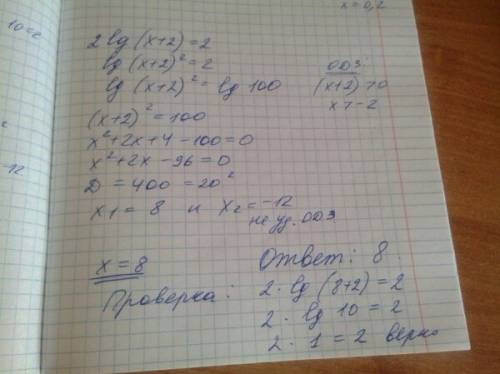 x = 0,2
2 lg (x+2) = 2
lg (x+2)² = 2
lg (x+2)² = lg 100
ОДЗ:
(x+2) > 0
x > -2
(x+2)² = 100
x² + 2x + 4 - 100 = 0
x² + 2x - 96 = 0
D = 400 = 20²
x1 = 8 и x2 = -12
не уд. ОДЗ
x = 8
Ответ: 8.
Проверка:
2 · lg (8+2) = 2
2 · lg 10 = 2
2 · 1 = 2 верно
-12